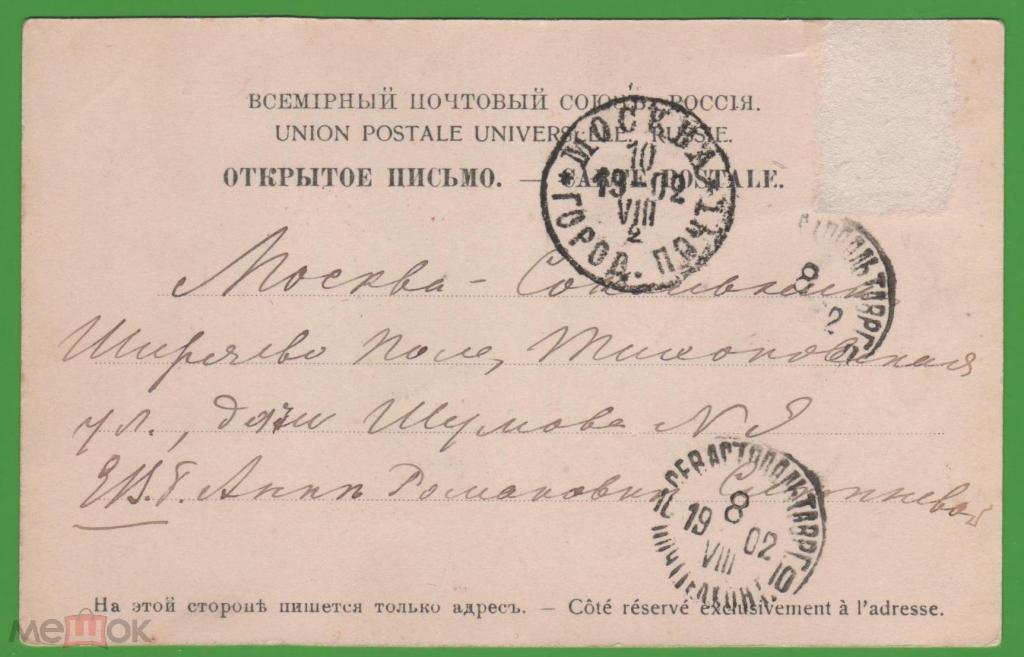 ВСЕМІРНЫЙ ПОЧТОВЫЙ СОЮЗЪ. РОССІЯ.
UNION POSTALE UNIVERSELLE. RUSSIE.
ОТКРЫТОЕ ПИСЬМО. — CARTE POSTALE.
МОСКВА
10
19 02
VIII
2
ГОРОД. ПОЧТ.
8
2
Москва - Сокольники
Ширяево Поле, Тихоновская
ул., дачи Шумова N
ЕВ. Аннѣ Романовнѣ
СЕВАСТОПОЛЬ ТАВР. Г.
8
19 02
VIII
На этой сторонѣ пишется только адресъ. — Côté réservé exclusivement à l'adresse.
мешок